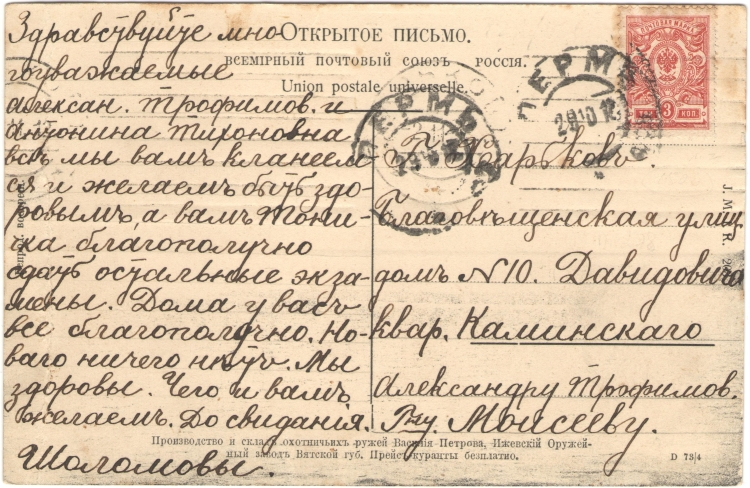 ОТКРЫТОЕ ПИСЬМО.
ВСЕМІРНЫЙ ПОЧТОВЫЙ СОЮЗЪ РОССІЯ.
Union postale universelle.
Здравствуйте мно-
гоуважаемые
Алексан. Трофимов. и
Антонина Тихоновна
всѣ мы вамъ кланеем
ся и желаемъ быть здо-
ровымъ, а вамъ Тони-
чка благополучно
сдать остальные экза-
мены. Дома у васъ
все благополучно. Но-
ваго ничего нѣт. Мы
здоровы. Чего и вамъ
желаемъ. До свидания.
Шоломовы.
ПОЧТОВАЯ МАРКА
3 КОП.
ПЕРМЬ
29 10 12
ПЕРМЬ
Г. Харьковъ
Благовѣщенская улиц
домъ N 10. Давидовича
квар. Каминскаго
Александру Трофимов.
Гну. Моисееву.
Производство и складъ охотничьихъ ружей Василія Петрова, Ижевскій Оружей-
ный заводъ Вятской губ. Прейсъ-куранты безплатно.
D 73/4